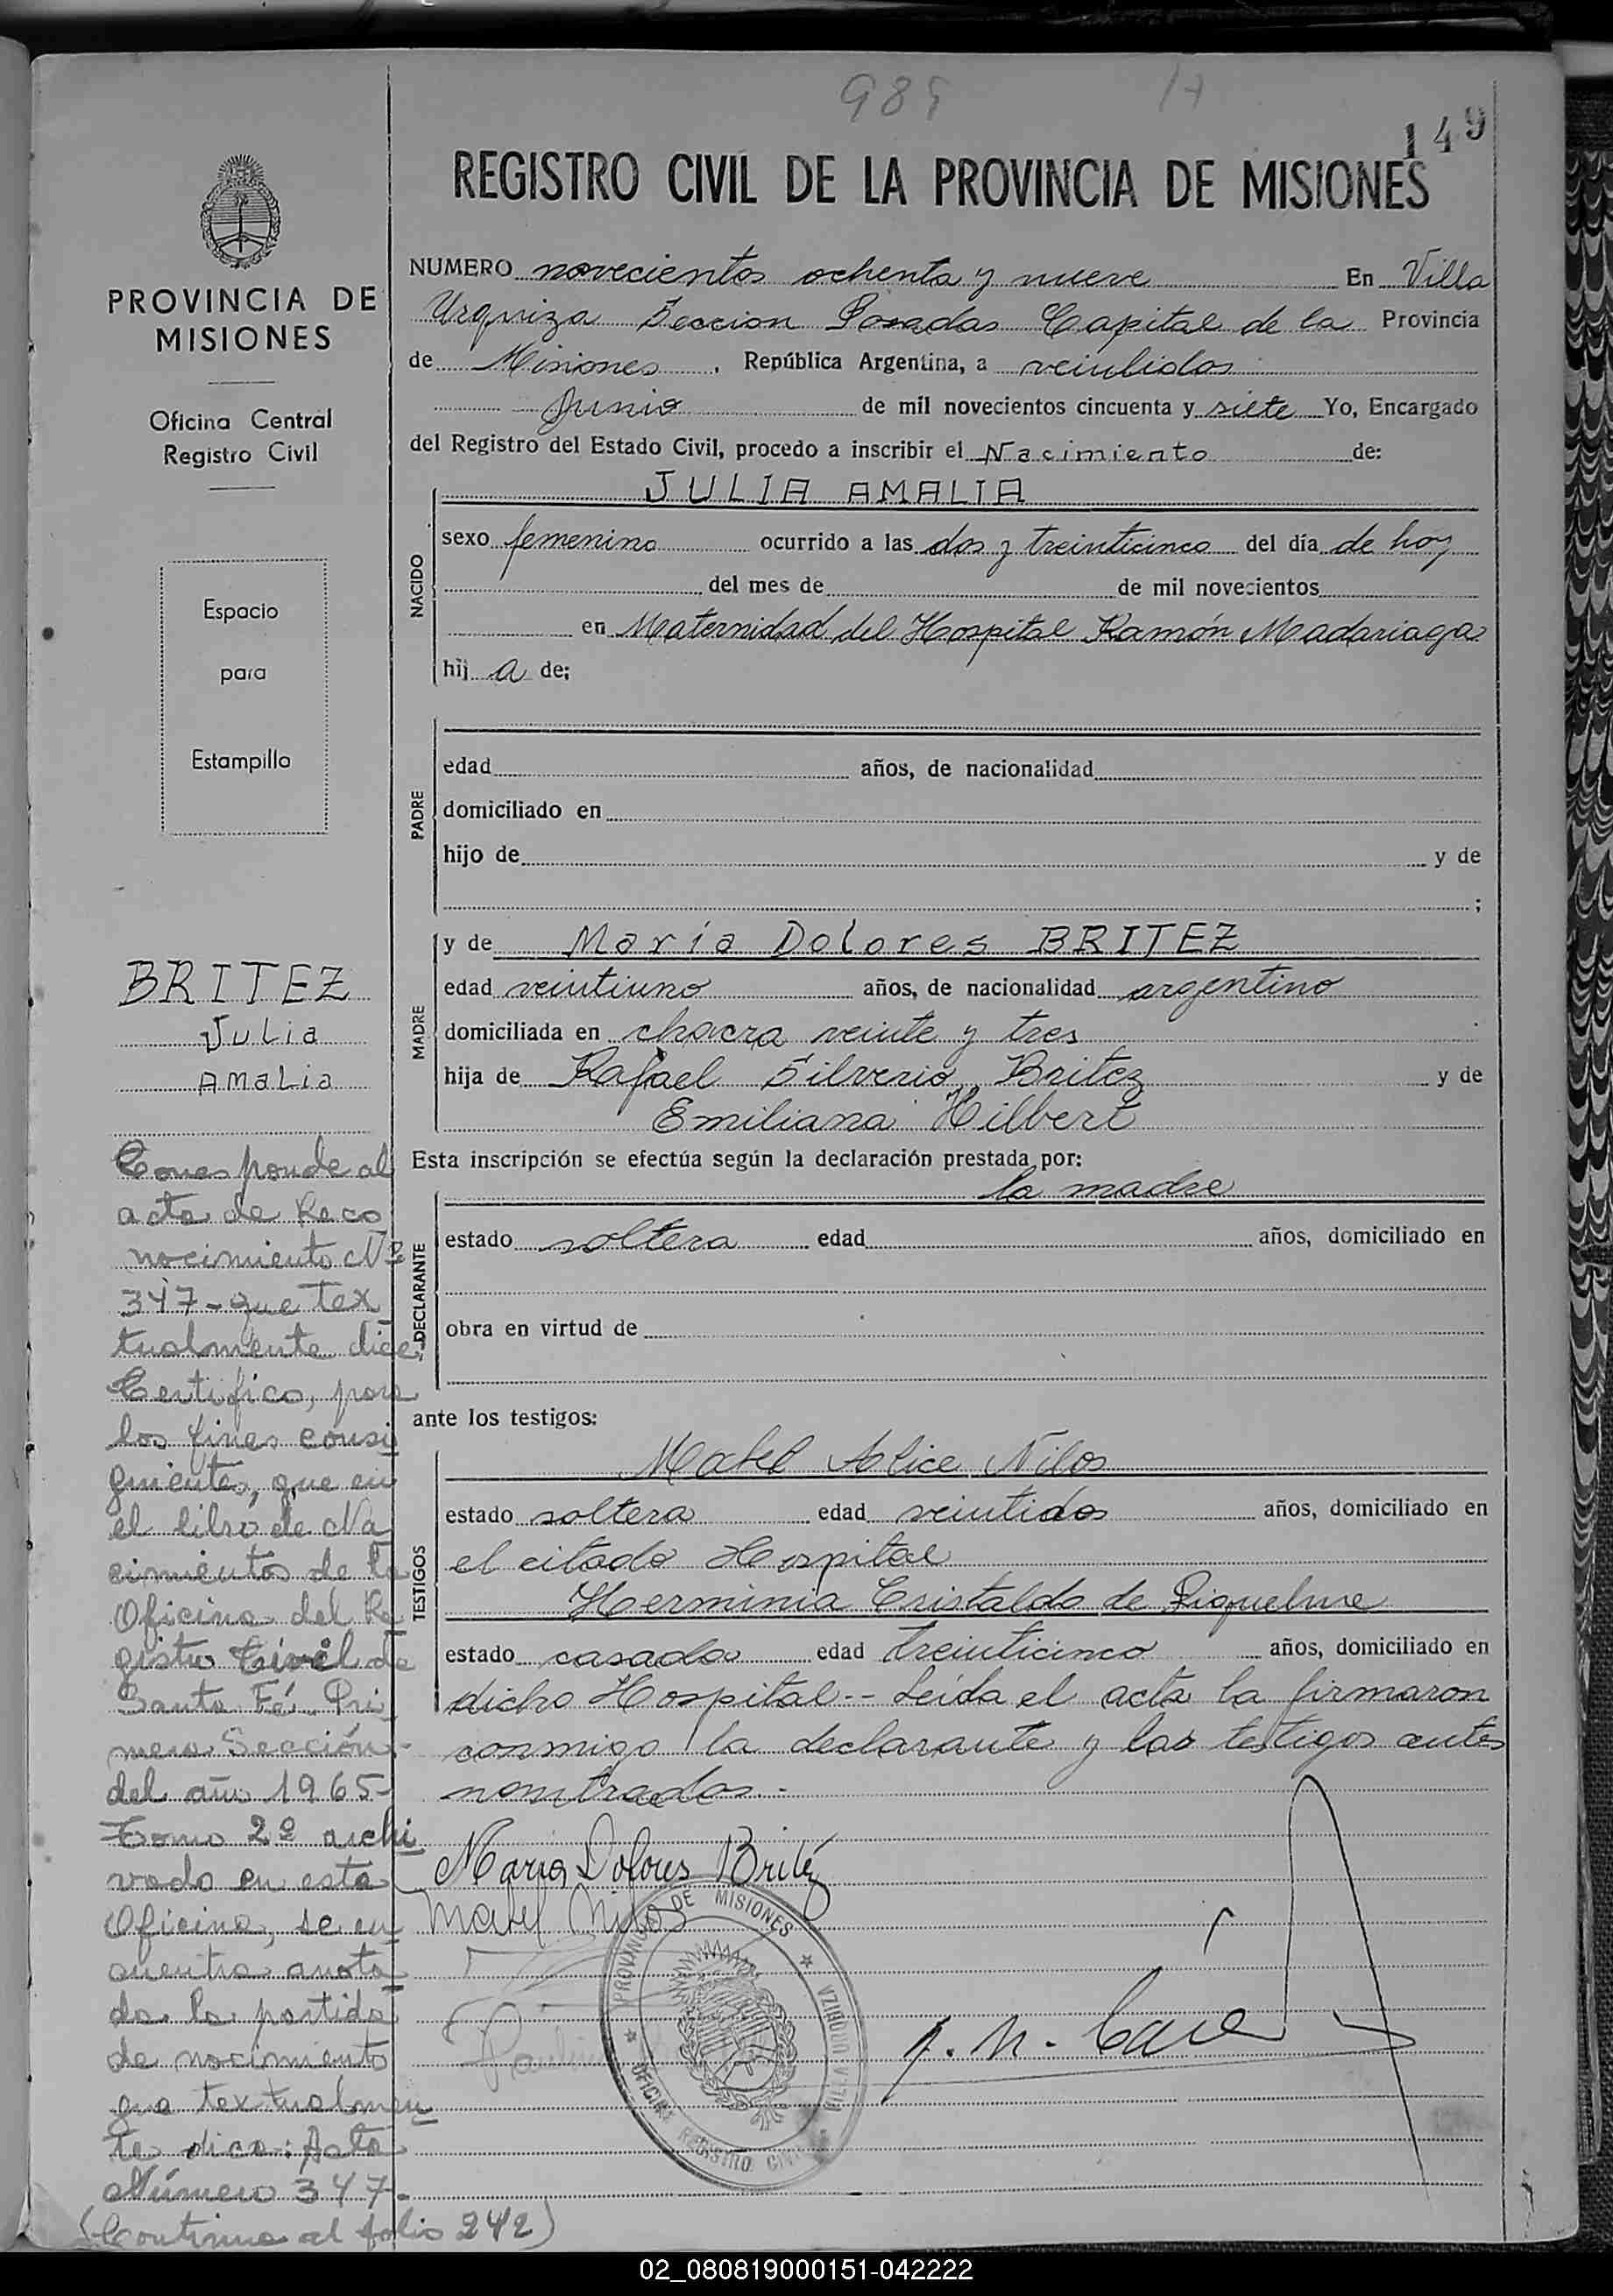 989 17
149
REGISTRO CIVIL DE LA PROVINCIA DE MISIONES
PROVINCIA DE
MISIONES
Oficina Central
Registro Civil
Espacio
para
Estampilla
BRITEZ
Julia
Amalia
Corresponde al
acta de Reco
nocimiento Nº
347 - que tex
tualmente dice:
Certifico, para
los fines consi
guientes, que en
el libro de Na
cimientos de la
Oficina del Re
gistro Civil de
Santa Fé Pri
mera Sección -
del año 1965 -
Tomo 2º archi
vado en esta
Oficina, se en
cuentra anota
da la partida
de nacimiento
que textualmen
te dice: Acta
Número 347 -
(Continua al folio 242)
NUMERO novecientos ochenta y nueve En Villa
Urquiza Seccion Posadas Capital de la Provincia
de Misiones . República Argentina, a veintidos
Junio de mil novecientos cincuenta y siete Yo, Encargado
del Registro del Estado Civil, procedo a inscribir el Nacimiento de:
NACIDO
JULIA AMALIA
sexo femenino ocurrido a las dos y treinticinco del día de hoy
del mes de de mil novecientos
en Maternidad del Hospital Ramón Madariaga
hij a de;
PADRE
edad años, de nacionalidad
domiciliado en
hijo de y de
;
MADRE
y de María Dolores BRITEZ
edad veintiuno años, de nacionalidad argentino
domiciliada en chacra veinte y tres
hija de Rafael Silverio Britez y de
Emiliana Hilbert
Esta inscripción se efectúa según la declaración prestada por:
DECLARANTE
la madre
estado soltera edad años, domiciliado en
obra en virtud de
ante los testigos:
TESTIGOS
Mabel Alice Nilos
estado soltera edad veintidos años, domiciliado en
el citado Hospital
Herminia Cristaldo de Riquelme
estado casada edad treinticinco años, domiciliado en
dicho Hospital -- Leída el acta la firmaron
conmigo la declarante y las testigos antes
nombradas. -
María Dolores Britéz
Mabel Nilos
PROVINCIA DE MISIONES
VILLA URQUIZA
OFICINA REGISTRO CIVIL
02_080819000151-042222